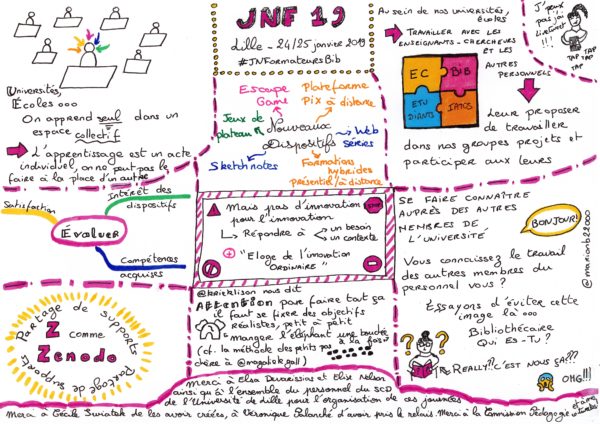 JNF 19
Lille - 24/25 janvier 2019
#JNFormateursBib
Universités,
Écoles ooo
On apprend seul dans un
espace collectif
L'apprentissage est un acte
individuel, on ne peut pas le
faire à la place d'un autre
Escape
Game
Plateforme
Pix à distance
Jeux de
plateau
Nouveaux
Dispositifs
Web
Séries
Sketchnotes
Formations
hybrides
Présentiel/à distance
Au sein de nos universités,
écoles
Travailler avec les
enseignants-chercheurs
et les
autres
personnels
EC
BIB
ETU
DIANTS
IATOS
J'peux
pas j'ai
!!!
TAP
TAP TAP
TAP
Leur proposer
de travailler
dans nos groupes projets et
participer aux leurs
Satisfaction
Intérêt des
dispositifs
Évaluer
Compétences
acquises
Mais pas d'innovation
pour l'innovation
STOP
Répondre à
un besoin
un contexte
"Eloge de l'innovation
ordinaire"
SE FAIRE CONNAÎTRE
AUPRÈS DES AUTRES
MEMBRES DE
L'UNIVERSITÉ
BONJOUR!
Vous connaissez le travail
des autres membres du
personnel vous ?
Essayons d'éviter cette
image là ooo
Bibliothécaire
Qui es-tu ?
REALLY?? C'EST NOUS ÇA???
OMG!!!
@marionb22000
Partage de supports
Z
comme
Zenodo
Partage de supports
nous dit
Attention pare faire tout ça
il faut se fixer des objectifs
réalistes, petit à petit
manger l'éléphant une bouchée
à la fois
(cf. la méthode des petits pas
chère à @magalielegall)
Merci à Elsa Devarissias et Elise Nelson
ainsi qu'à l'ensemble du personnel du SCD
de l'Université de Lille pour l'organisation de ces journées
Merci à Cécile Swiatek de les avoir créées, à Véronique Palanché d'avoir pris le relais. Merci à la Commission Pédagogie